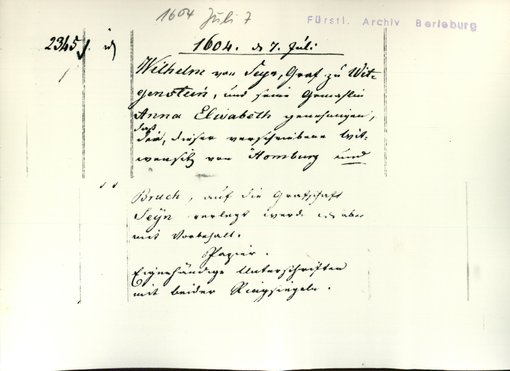 1604 Juli 7
Fürstl. Archiv Berleburg
2345
1604. d 7. Juli
Wilhelm von Seyn, Graf zu Wit-
genstein, und seine Gemahlin
Anna Elisabeth genehmigen,
daß
der, dieser verschriebene Wit-
wensitz von Homburg und
Bruch, auf die Grafschaft
Seÿn verlegt werde aber
mit Vorbehalt.
Papier.
Eigenhändige Unterschriften
mit beider Ringsiegeln.